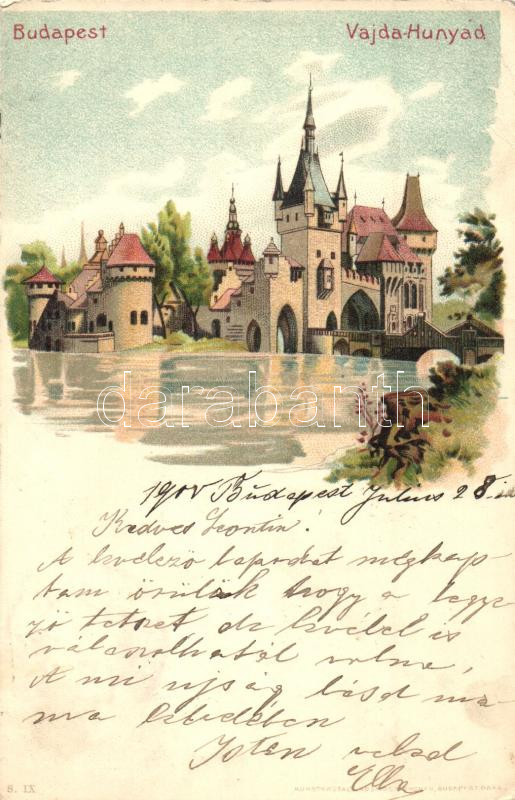 Budapest
Vajda-Hunyad
darabanth
1900 Budapest Julius 28.
Kedves Leontin!
A levelező lapodat megkap
tam örülök hogy a legye
ző tetszet de levélel is
válaszolhatál volna,
A mi ujság lásd ma
ma levelében
Isten veled
Ella
S. IX